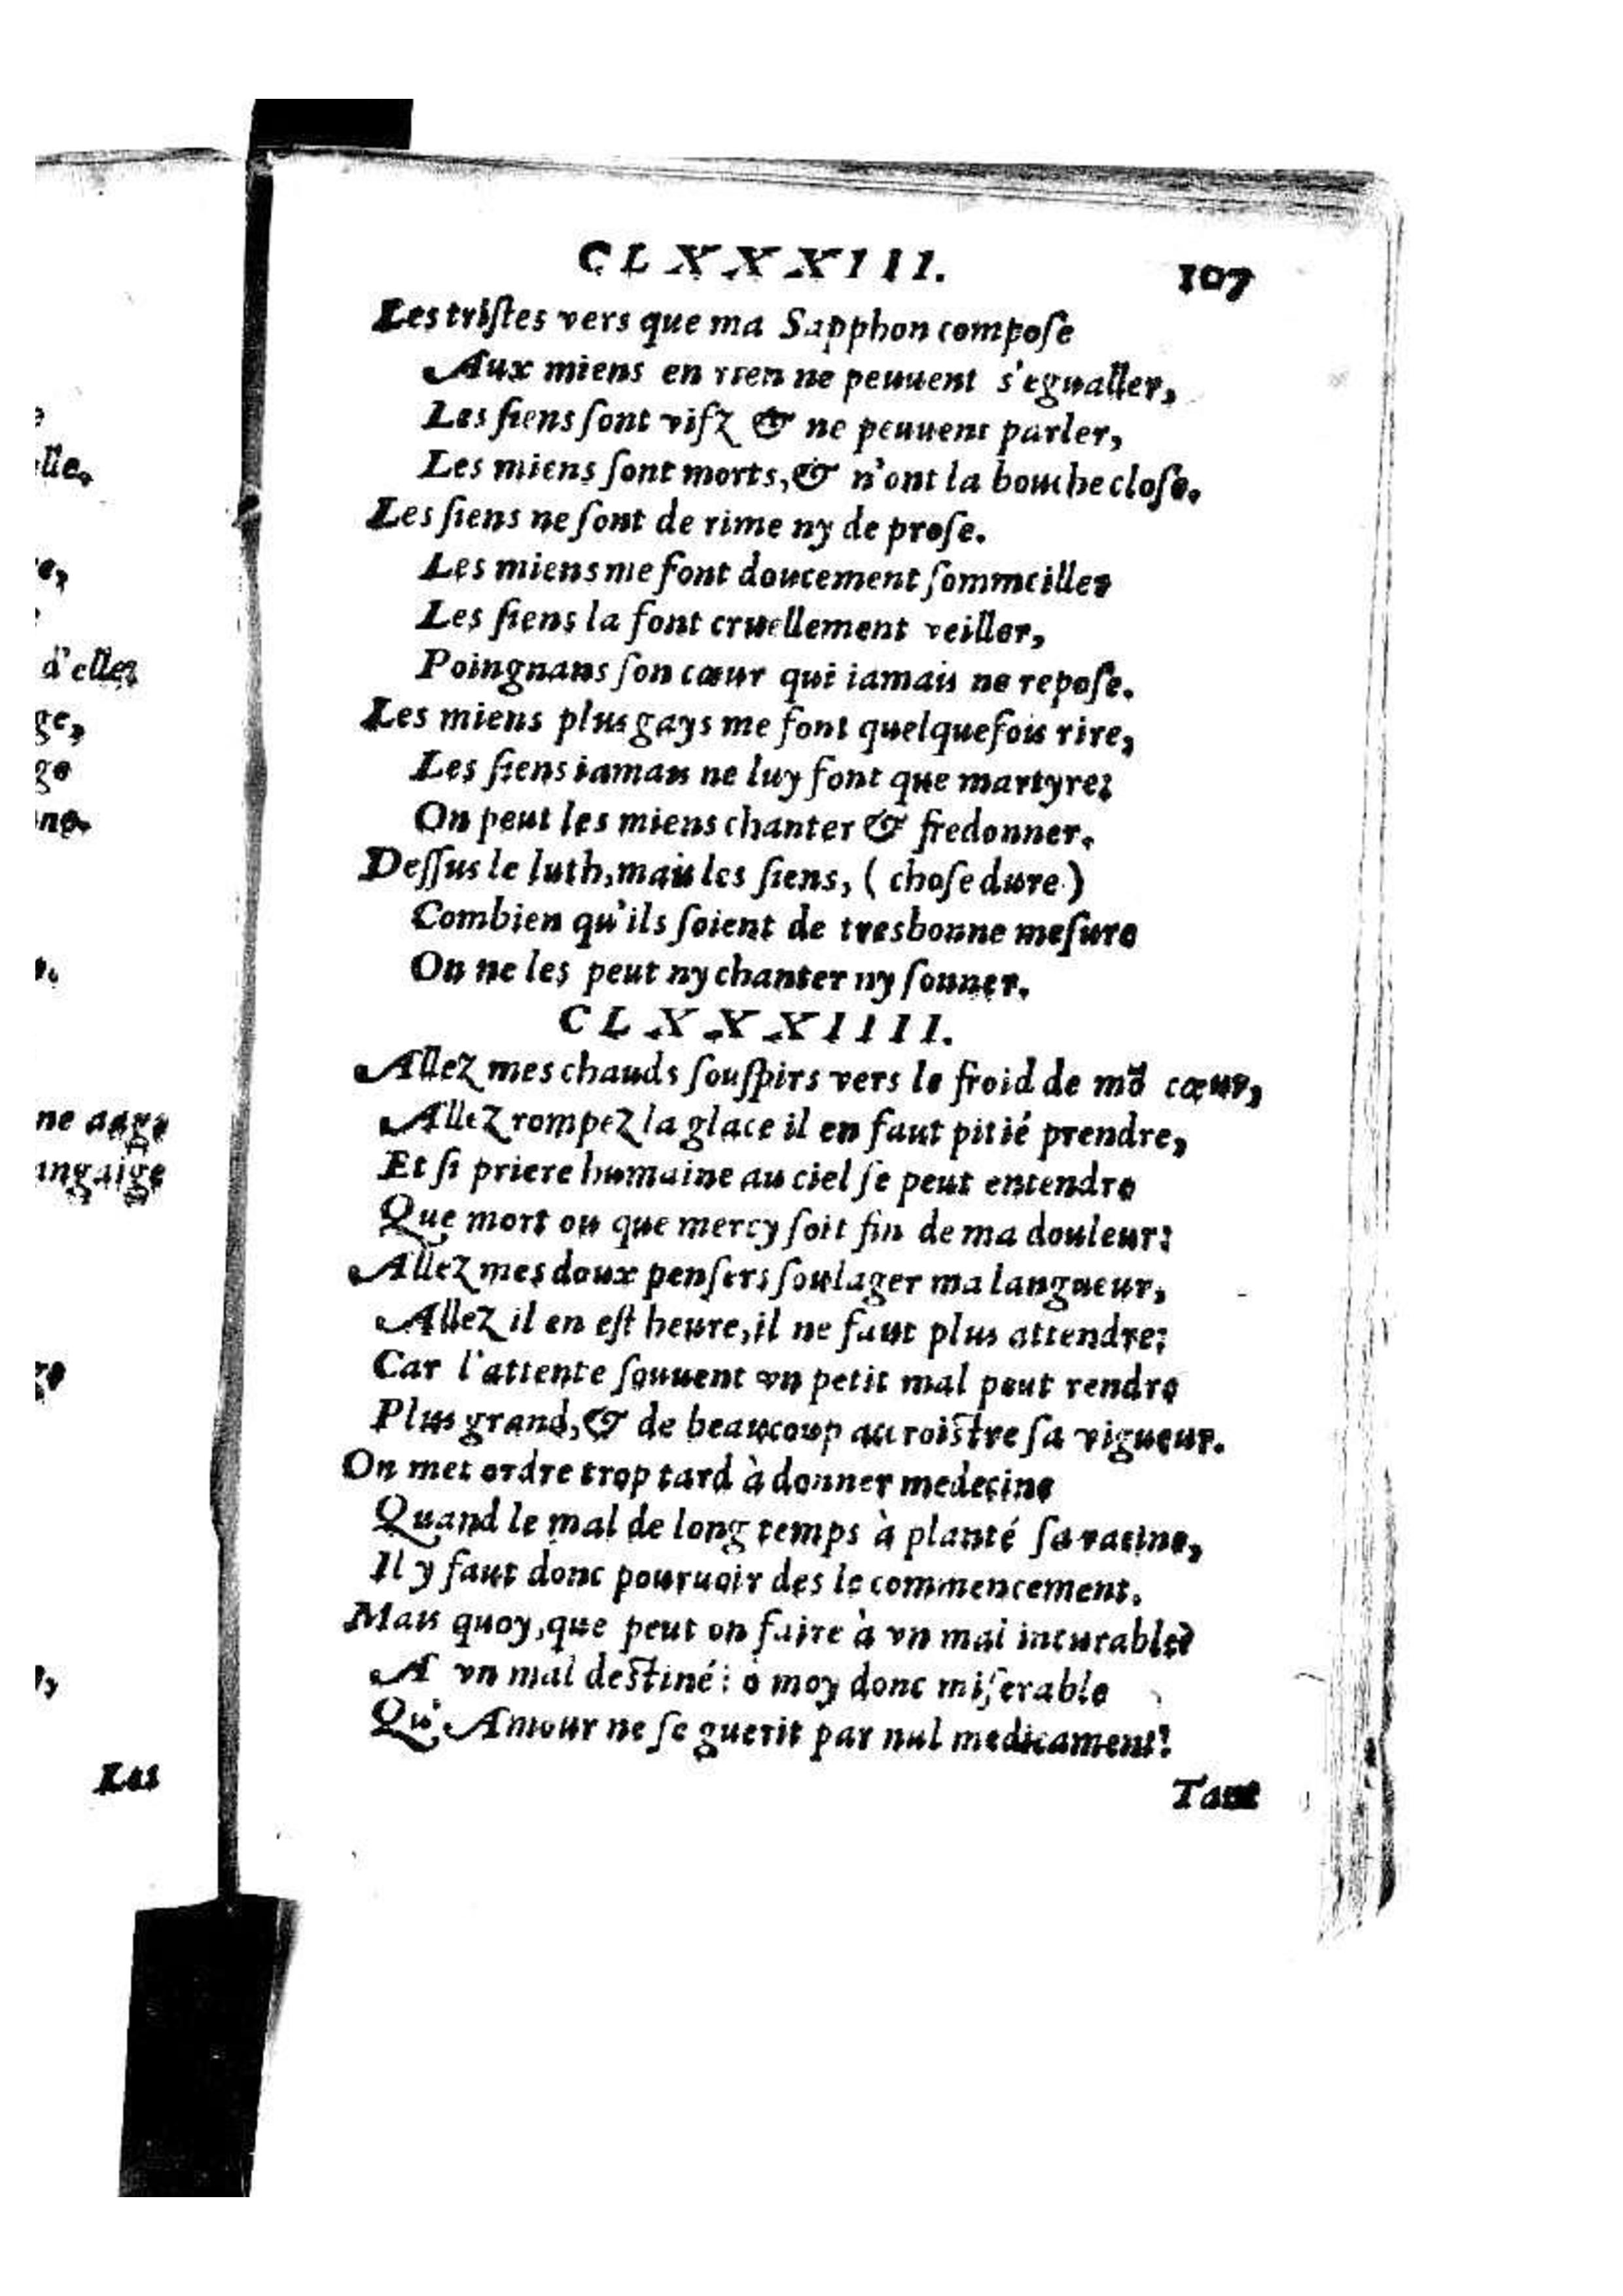 CLXXXIII.
107
Les triſtes vers que ma Sapphon compoſe
Aux miens en rien ne peuuent s'egualler,
Les ſiens ſont vifz & ne peuuent parler,
Les miens ſont morts, & n'ont la bouche cloſe.
Les ſiens ne ſont de rime ny de proſe.
Les miens me font doucement ſommeiller
Les ſiens la font cruellement veiller,
Poingnans ſon cœur qui iamais ne repoſe.
Les miens plus gays me font quelquefois rire,
Les ſiens iamais ne luy font que martyre;
On peut les miens chanter & fredonner.
Deſſus le luth, mais les ſiens, (choſe dure)
Combien qu'ils ſoient de tresbonne meſure
On ne les peut ny chanter ny ſonner.
CLXXXIIII.
Allez mes chauds ſouſpirs vers le froid de mõ cœur,
Allez rompez la glace il en faut pitié prendre,
Et ſi priere humaine au ciel ſe peut entendre
Que mort ou que mercy ſoit fin de ma douleur:
Allez mes doux penſers ſoulager ma langueur,
Allez il en eſt heure, il ne faut plus attendre:
Car l'attente ſouuent vn petit mal peut rendre
Plus grand, & de beaucoup accroiſtre ſa vigueur.
On met ordre trop tard à donner medecine
Quand le mal de long temps à planté ſa racine,
Il y faut donc pouruoir des le commencement.
Mais quoy, que peut on faire à vn mal incurable?
A vn mal deſtiné: ô moy donc miſerable
Qu'Amour ne ſe guerit par nul medicament!
Tant
lle,
d'elles
ge,
ge
ne aage
angaige
Les